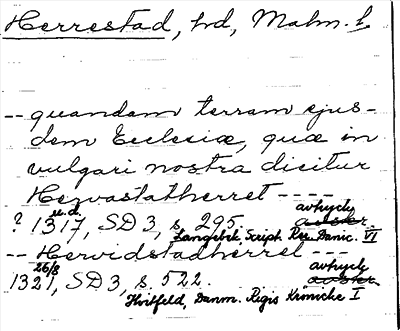 Herrestad, hd, Malm. l.
-- quandam terram ejus-
dem Ecclesiæ, quæ in
vulgari nostra dicitur
Hezvastatherret ----
? 1317, u.d. SD 3, s. 295. avtryck
Langebek Script. Rer. Danic. VI
-- Hervidstadherret ---
1321, 26/8 SD 3, s. 522. avtryck
Hvitfeld, Danm. Rigis Krönicke I